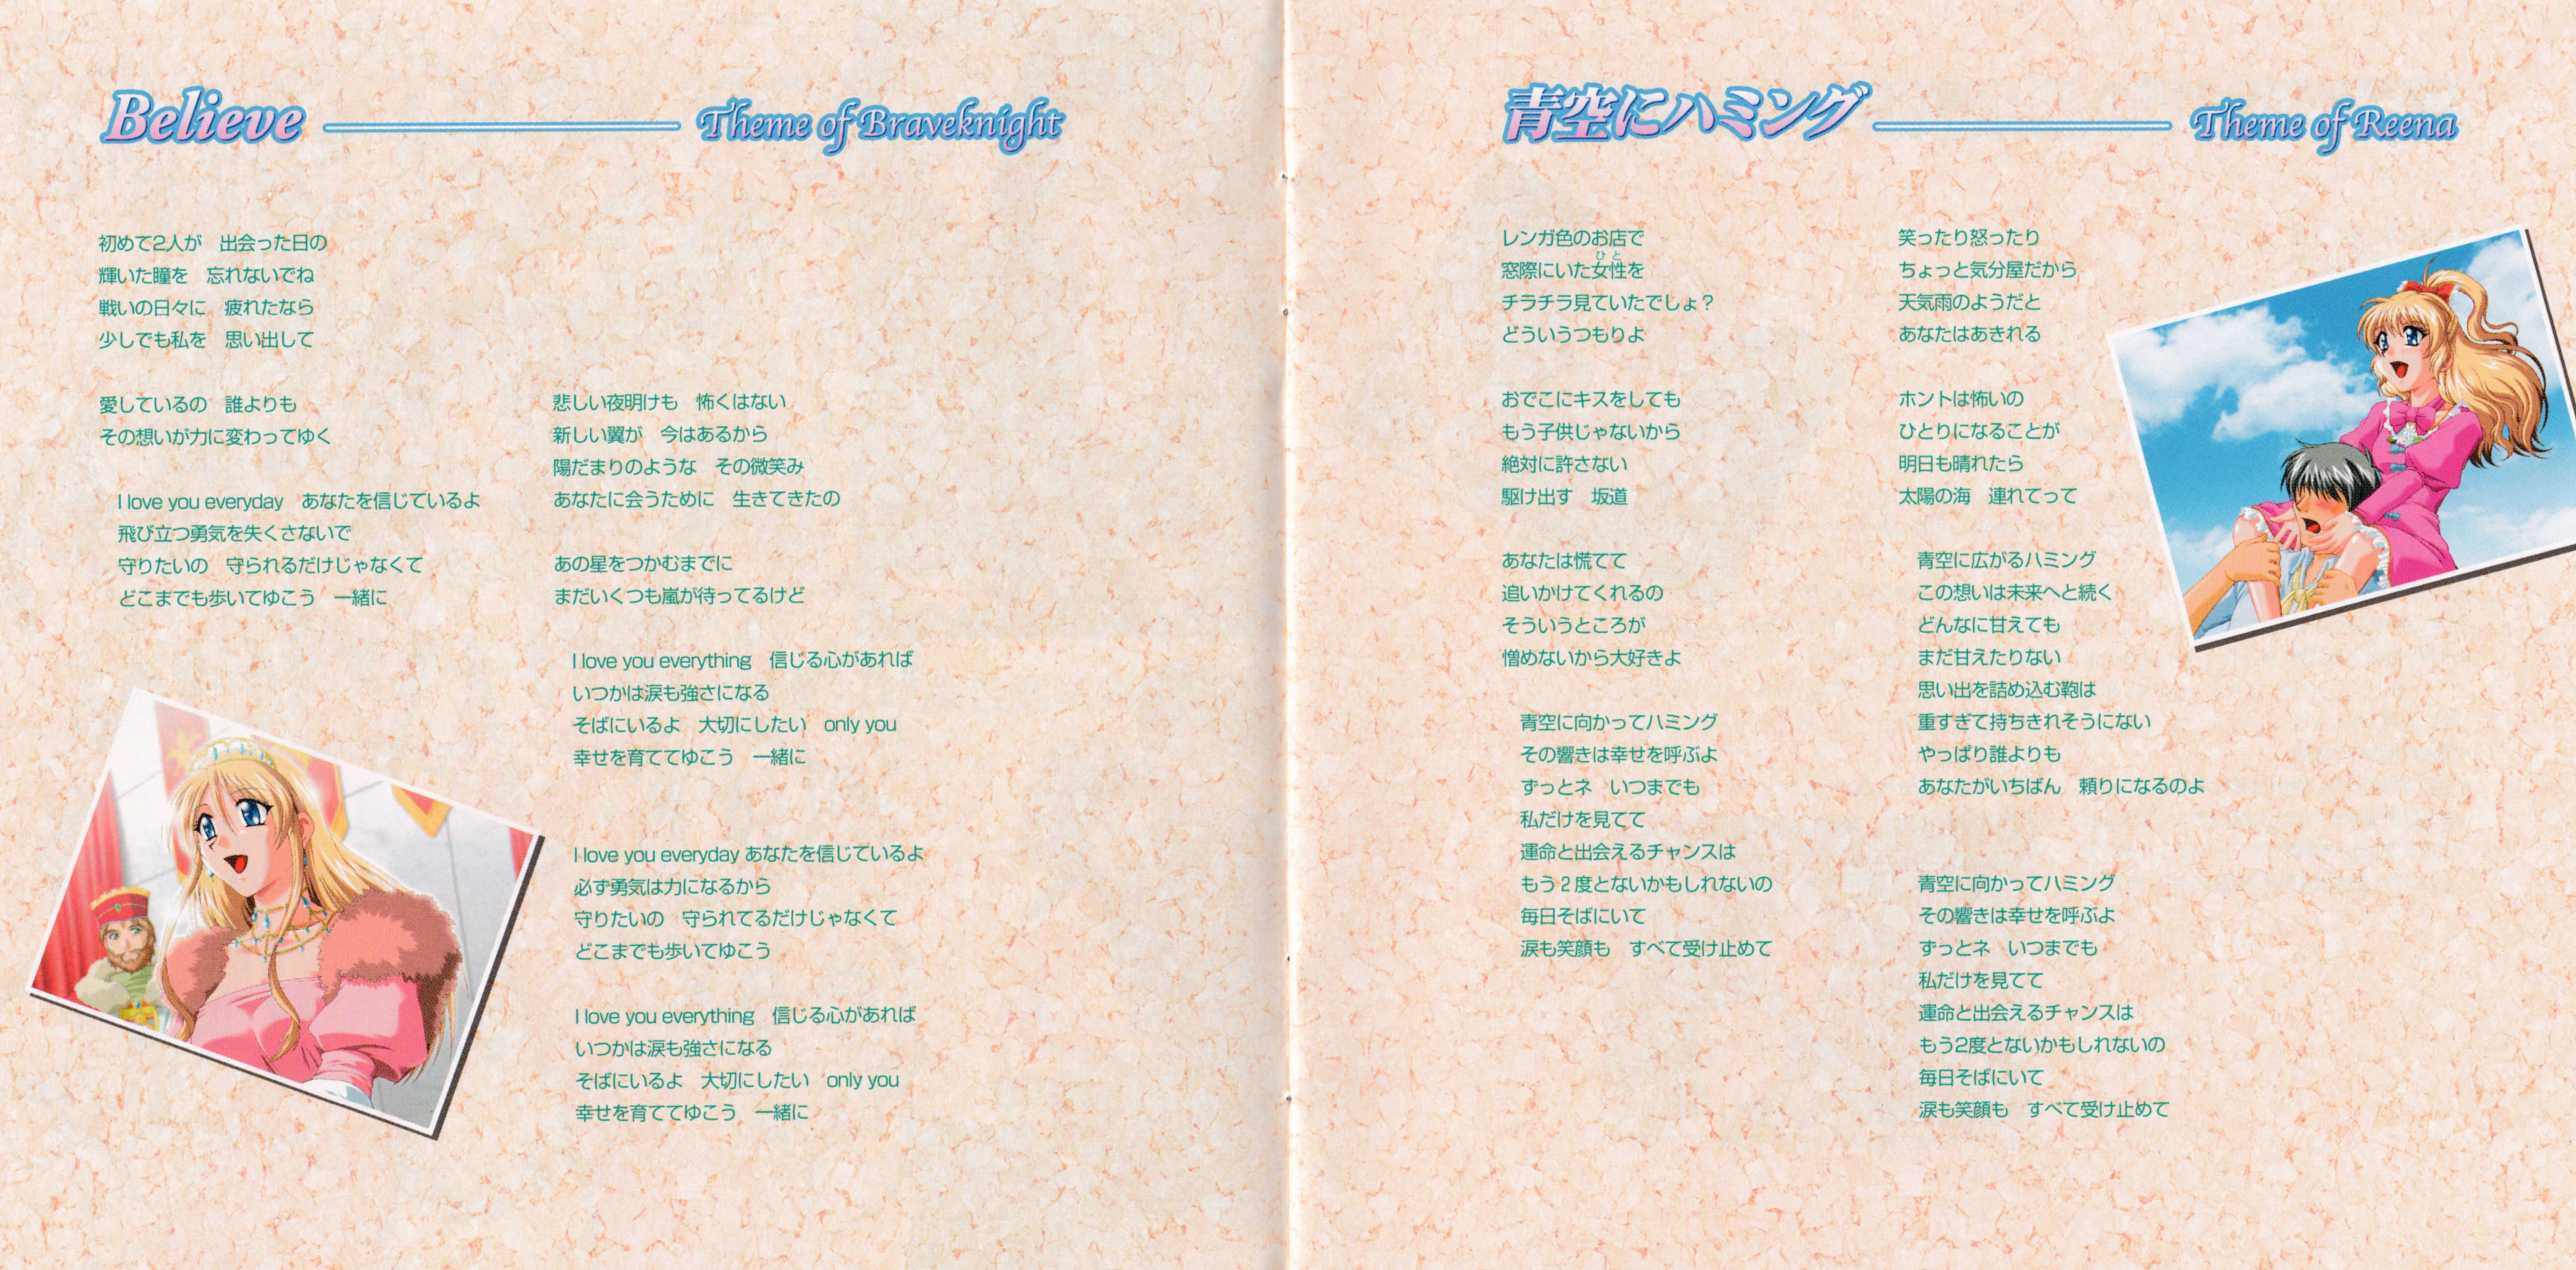 Believe
Theme of Braveknight
初めて2人が　出会った日の
輝いた瞳を　忘れないでね
戦いの日々に　疲れたなら
少しでも私を　思い出して
愛しているの　誰よりも
その想いが力に変わってゆく
I love you everyday　あなたを信じているよ
飛び立つ勇気を失くさないで
守りたいの　守られるだけじゃなくて
どこまでも歩いてゆこう　一緒に
悲しい夜明けも　怖くはない
新しい翼が　今はあるから
陽だまりのような　その微笑み
あなたに会うために　生きてきたの
あの星をつかむまでに
まだいくつも嵐が待ってるけど
I love you everything　信じる心があれば
いつかは涙も強さになる
そばにいるよ　大切にしたい　only you
幸せを育ててゆこう　一緒に
I love you everyday あなたを信じているよ
必ず勇気は力になるから
守りたいの　守られてるだけじゃなくて
どこまでも歩いてゆこう
I love you everything　信じる心があれば
いつかは涙も強さになる
そばにいるよ　大切にしたい　only you
幸せを育ててゆこう　一緒に
青空にハミング
Theme of Reena
レンガ色のお店で
ひと
窓際にいた女性を
チラチラ見ていたでしょ？
どういうつもりよ
おでこにキスをしても
もう子供じゃないから
絶対に許さない
駆け出す　坂道
あなたは慌てて
追いかけてくれるの
そういうところが
憎めないから大好きよ
青空に向かってハミング
その響きは幸せを呼ぶよ
ずっとネ　いつまでも
私だけを見てて
運命と出会えるチャンスは
もう２度とないかもしれないの
毎日そばにいて
涙も笑顔も　すべて受け止めて
笑ったり怒ったり
ちょっと気分屋だから
天気雨のようだと
あなたはあきれる
ホントは怖いの
ひとりになることが
明日も晴れたら
太陽の海　連れてって
青空に広がるハミング
この想いは未来へと続く
どんなに甘えても
まだ甘えたりない
思い出を詰め込む鞄は
重すぎて持ちきれそうにない
やっぱり誰よりも
あなたがいちばん　頼りになるのよ
青空に向かってハミング
その響きは幸せを呼ぶよ
ずっとネ　いつまでも
私だけを見てて
運命と出会えるチャンスは
もう2度とないかもしれないの
毎日そばにいて
涙も笑顔も　すべて受け止めて